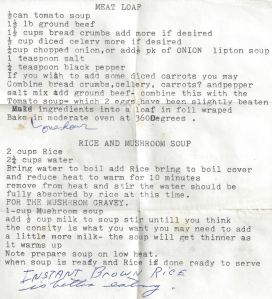 MEAT LOAF
½can tomato soup
1½ lb ground beef
1½ cups bread crumbs add more if desired
½ cup diced celery more if desired
½cup chopped onion,or add½ pk of ONION lipton soup
1 teaspoon salt
½ teaspoon black pepper
If you wish to add some diced carrots you may
Combine bread crumbs,cellery, carrots? andpepper
salt mix add ground beef- combine this with the
Tomato soup- which 2 eggs have been slightly beaten
Make ingredients into a loaf in foil wraped
Bake in moderate oven at 360Degrees .
1 hour
RICE AND MUSHROOM SOUP
2 cups Rice
2½ cups water
Bring water to boil add Rice bring to boil cover
and reduce heat to warm for 10 minutes
remove from heat and stir the water should be
fully absorbed by rice at this time.
FOR THE MUSHROM GRAVEY.
1-cup Mushroom soup
add ½ cup milk to soup stir untill you think
the consity is what you want you may need to add
a little more milk- the soup will get thinner as
it warms up
Note prepare soup on low heat.
when soup is ready and Rice if done ready to serve
INSTANT BROWN RICE
is better eating.